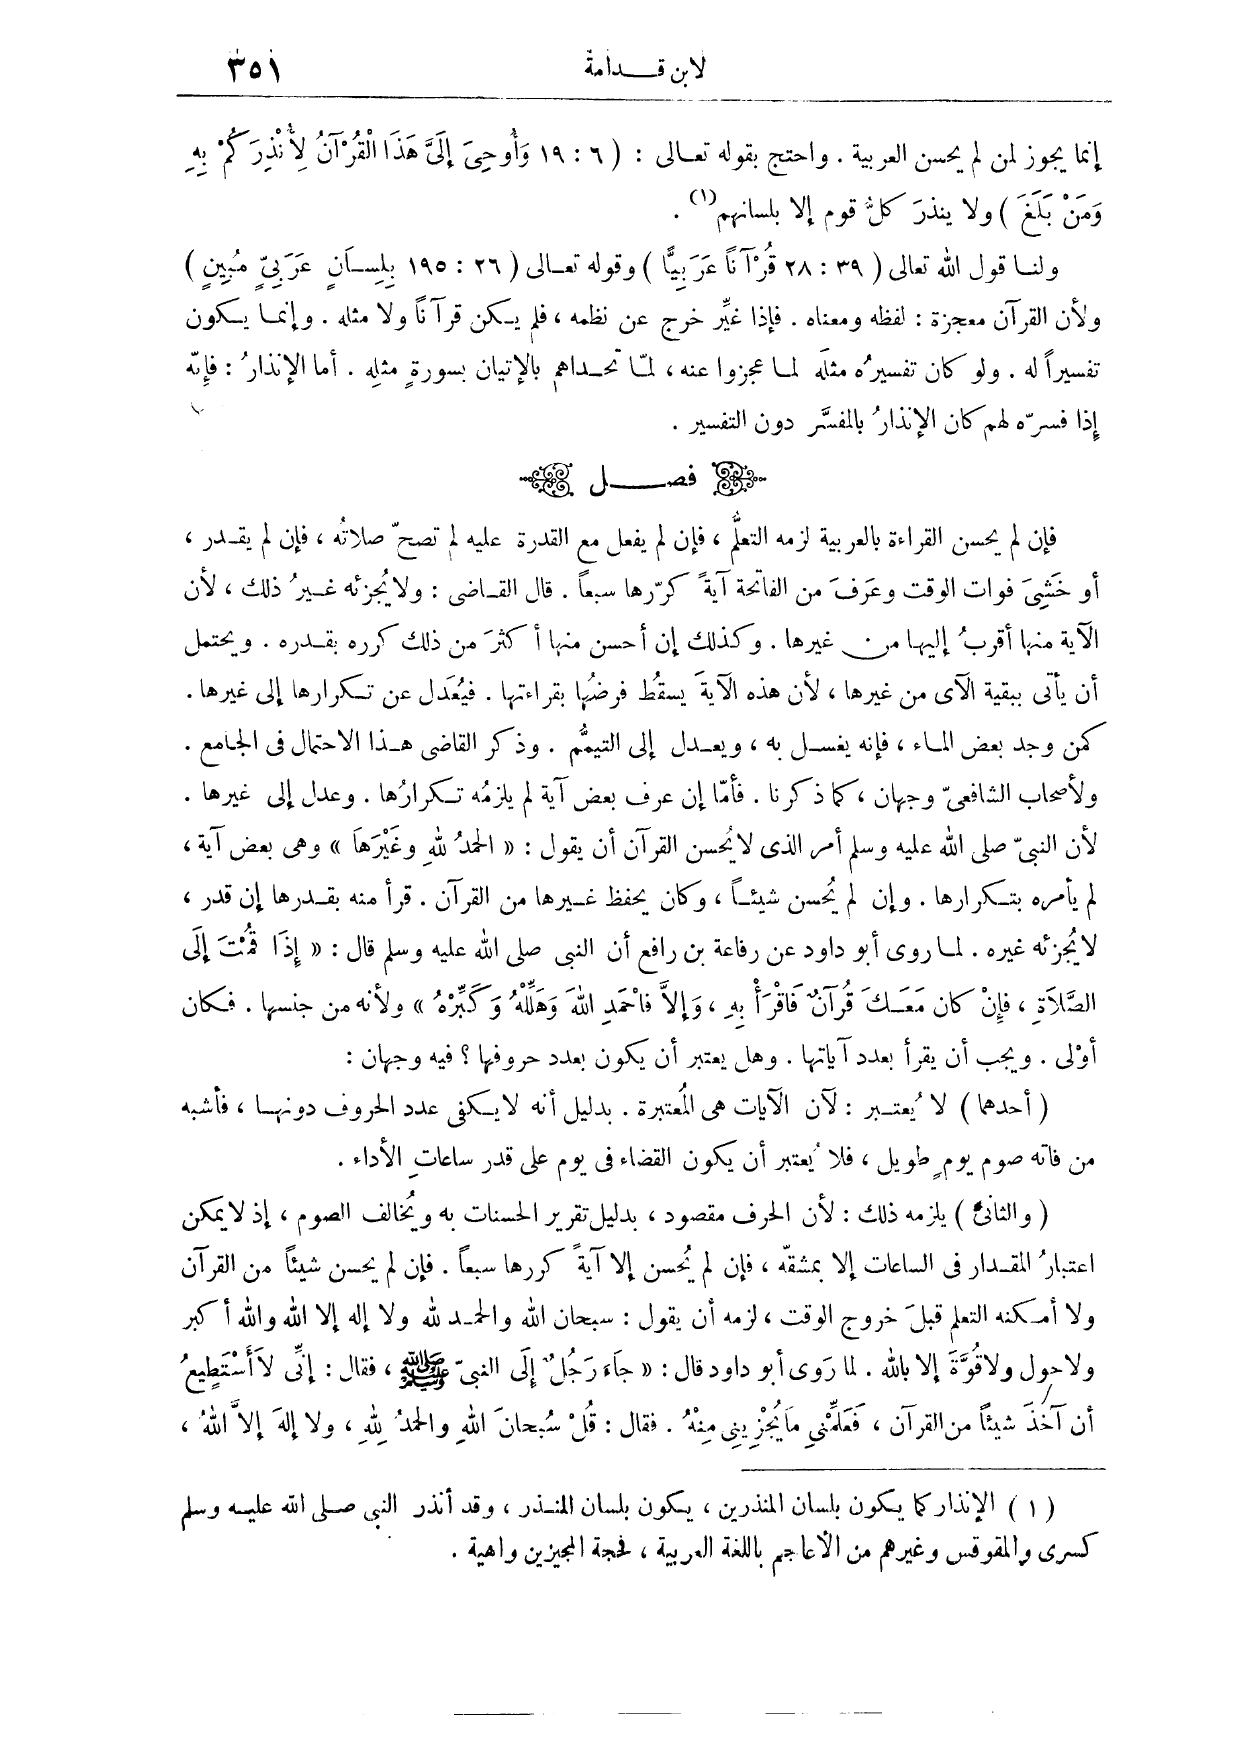 لابن قدامة ٣٥١
إنما يجوز لمن لم يحسن العربية . واحتج بقوله تعالى : ( ٦ : ١٩ وَأُوحِيَ إِلَيَّ هَذَا الْقُرْآنُ لِأُنْذِرَكُمْ بِهِ
وَمَنْ بَلَغَ ) ولا ينذرَ كلُّ قوم إلا بلسانهم (١) .
ولنا قول الله تعالى ( ٣٩ : ٢٨ قُرْآناً عَرَبِيًّا ) وقوله تعالى ( ٢٦ : ١٩٥ بِلِسَانٍ عَرَبِيٍّ مُبِينٍ )
ولأن القرآن معجزة : لفظه ومعناه . فإذا غيِّر خرج عن نظمه ، فلم يكن قرآناً ولا مثله . وإنما يكون
تفسيراً له . ولو كان تفسيرُه مثلَه لما عجزوا عنه ، لمّا تحداهم بالإتيان بسورةٍ مثلِه . أما الإنذارُ : فإنّه
إذا فسرّه لهم كان الإنذارُ بالمفسَّر دون التفسير .
فصل
فإن لم يحسن القراءة بالعربية لزمه التعلُّم ، فإن لم يفعل مع القدرة عليه لم تصحّ صلاتُه ، فإن لم يقدر ،
أو خَشِىَ فوات الوقت وعرَفَ من الفاتحة آيةً كرّرها سبعاً . قال القاضى : ولا يُجزئه غيرُ ذلك ، لأن
الآية منها أقربُ إليها من غيرها . وكذلك إن أحسن منها أكثرَ من ذلك كرره بقدره . ويحتمل
أن يأتى ببقية الآى من غيرها ، لأن هذه الآيةَ يسقُط فرضُها بقراءتها . فيُعدَل عن تكرارها إلى غيرها .
كمن وجد بعض الماء ، فإنه يغسل به ، ويعدل إلى التيمُّم . وذكر القاضى هذا الاحتمال فى الجامع .
ولأصحاب الشافعىّ وجهان ، كما ذكرنا . فأمّا إن عرف بعض آية لم يلزمُه تكرارُها . وعدل إلى غيرها .
لأن النبىّ صلى الله عليه وسلم أمر الذى لا يُحسن القرآن أن يقول : « الحمدُ للهِ وغَيْرَهاَ » وهى بعض آية ،
لم يأمره بتكرارها . وإن لم يُحسن شيئاً ، وكان يحفظ غيرها من القرآن . قرأ منه بقدرها إن قدر ،
لا يُجزئه غيره . لما روى أبو داود عن رفاعة بن رافع أن النبى صلى الله عليه وسلم قال : « إِذَا قُمْتَ إِلَى
الصَّلَاةِ ، فإِنْ كان مَعَكَ قُرآنٌ فَاقْرَأْ بِهِ ، وَإِلاَّ فاحْمَدِ اللهَ وَهَلِّلْهُ وَكَبِّرْهُ » ولأنه من جنسها . فكان
أوْلى . ويجب أن يقرأ بعدد آياتها . وهل يعتبر أن يكون بعدد حروفها ؟ فيه وجهان :
( أحدها ) لا يُعتبر : لأن الآيات هى المُعتبرة . بدليل أنه لا يكفى عدد الحروف دونها ، فأشبه
من فاته صوم يومٍ طويل ، فلا يُعتبر أن يكون القضاء فى يوم على قدر ساعاتِ الأداء .
( والثانى ) يلزمه ذلك : لأن الحرف مقصود ، بدليل تقرير الحسنات به ويُخالف الصوم ، إذ لا يمكن
اعتبارُ المقدار فى الساعات إلا بمشقّه ، فإن لم يُحسن إلا آيةً كررها سبعاً . فإن لم يحسن شيئاً من القرآن
ولا أمكنه التعلم قبلَ خروج الوقت ، لزمه أن يقول : سبحان الله والحمد لله ولا إله إلا الله والله أكبر
ولا حول ولا قُوَّةَ إلا بالله . لما رَوى أبو داود قال : « جاَءَ رَجُلٌ إِلَى النبىّ ﷺ ، فقال : إِنِّى لاَ أَسْتَطِيعُ
أن آخُذَ شيئاً من القرآن ، فَعَلِّمْنِي مَا يُجْزِينِى مِنْهُ . فقال : قُلْ سُبحانَ اللهِ والحمدُ لِلهِ ، ولا إلهَ إلاَّ اللهُ ،
( ١ ) الإنذار كما يكون بلسان المنذرين ، يكون بلسان المنذر ، وقد أنذر النبى صلى الله عليه وسلم
كسرى والمقوقس وغيرهم من الأعاجم باللغة العربية ، فحجة المجيزين واهية .